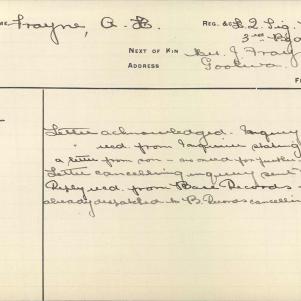 ME Frayne, A. H. REG. & L. 2. Sig.
3rd
NEXT OF KIN Mrs. J. Fray
ADDRESS Goolwa.
F
Letter acknowledged. Inquiry
" recd. from Inquirer stating
a letter from son - as need for further
Letter cancelling inquiry sent
Reply recd. from Base Records
already despatched to B. Records cancelling